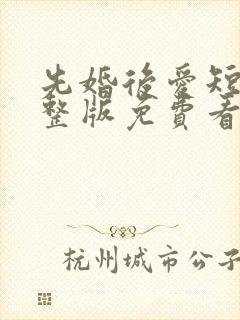 先婚後愛短
整版免費看
杭州城市公子